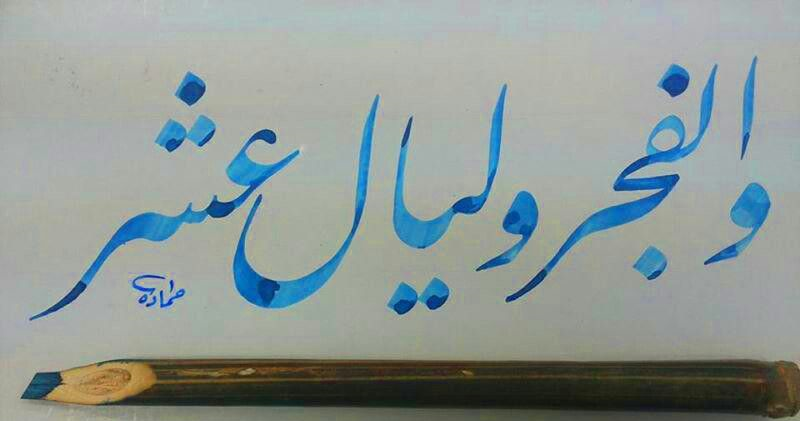 والفجر وليال عشر
حمادة